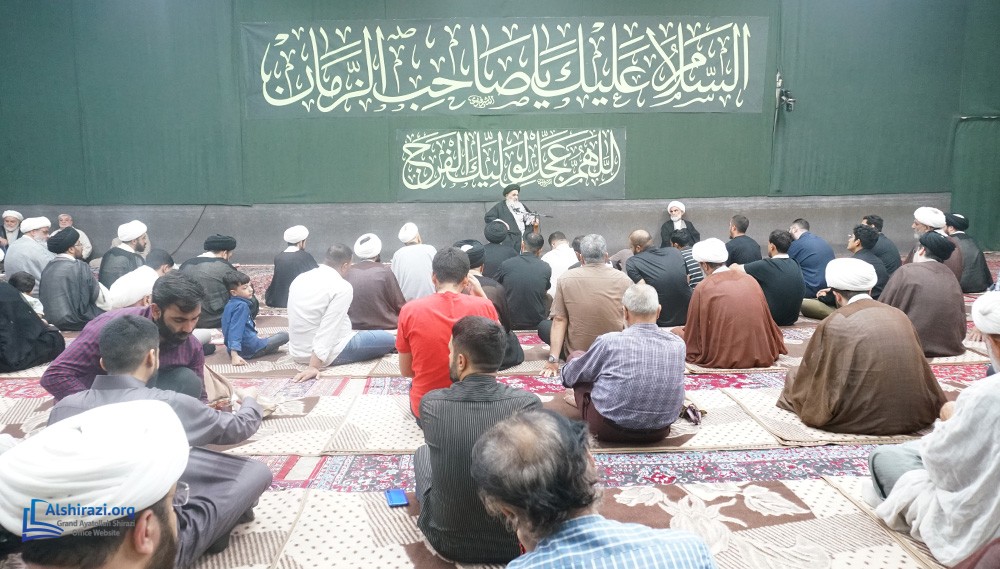 السَّلامُ عَلَيْكَ يَا صَاحِبَ الزَّمَانِ
اللّهُمَّ عَجِّلْ لِوَلِيِّكَ الْفَرَجَ
Alshirazi.org
Grand Ayatollah Shirazi
Office Website